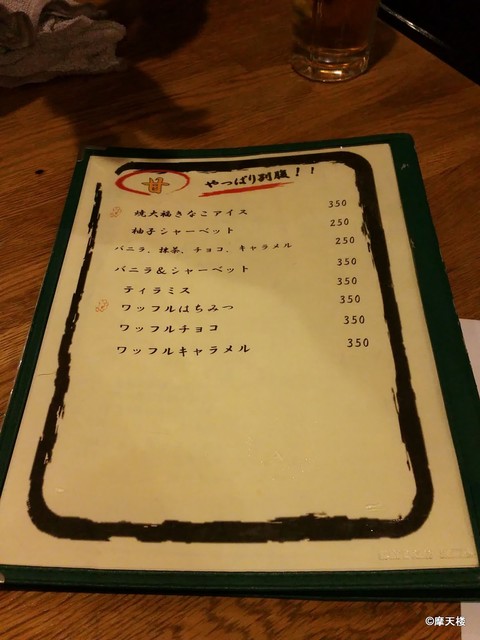 甘 やっぱり別腹!!
焼大福きなこアイス 350
柚子シャーベット 250
バニラ、抹茶、チョコ、キャラメル 250
バニラ&シャーベット 350
ティラミス 350
ワッフルはちみつ 350
ワッフルチョコ 350
ワッフルキャラメル 350
©摩天楼